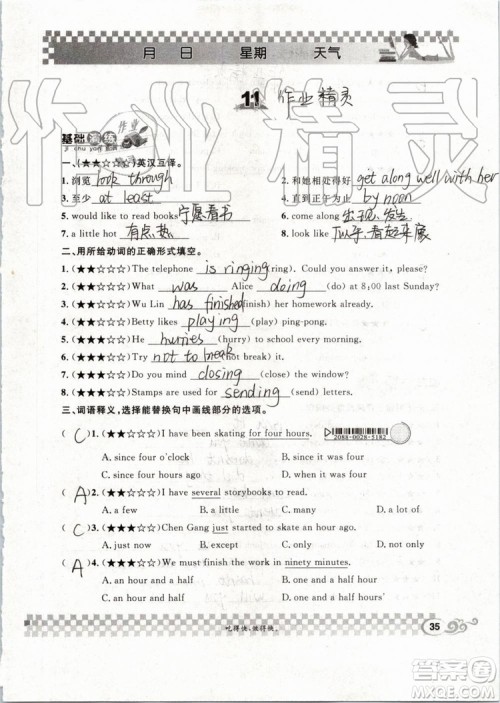 月 日 星期 天气
11 作业精灵
作业精灵
基础演练
一、(★★☆☆☆)英汉互译。
1. 浏览 look through 2. 和她相处得好 get along well with her
3. 至少 at least 4. 直到正午为止 by noon
5. would like to read books 宁愿看书 6. come along 出现、发生
7. a little hot 有点热 8. look like 似乎、看起来像
二、用所给动词的正确形式填空。
1. (★★☆☆☆)The telephone is ringing (ring). Could you answer it, please?
2. (★★☆☆☆)What was Alice doing (do) at 8:00 last Sunday?
3. (★★☆☆☆)Wu Lin has finished (finish) her homework already.
4. (★★☆☆☆)Betty likes playing (play) ping-pong.
5. (★★☆☆☆)He hurries (hurry) to school every morning.
6. (★★☆☆☆)Try not to break (not break) it!
7. (★★☆☆☆)Do you mind closing (close) the window?
8. (★★☆☆☆)Stamps are used for sending (send) letters.
三、词语释义,选择能替换句中画线部分的选项。
( C )1. (★★☆☆☆)I have been skating for four hours. 2088-0028-5182
A. since four o'clock B. since it was four
C. since four hours ago D. since it was four hours
( A )2. (★★☆☆☆)I have several storybooks to read.
A. a few B. a little C. many D. a lot of
( C )3. (★★☆☆☆)Chen Gang just started to skate an hour ago.
A. just now B. except C. only D. not only
( A )4. (★★☆☆☆)We must finish the work in ninety minutes.
A. an hour and a half B. an hour and half
C. an and a half hour D. one and a half hour
吃得快,做得快。
35
答案圈